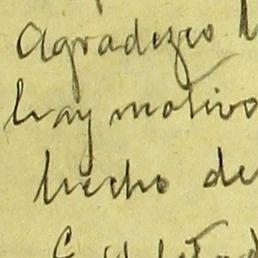 Agradezco
hay motivo
hecho de